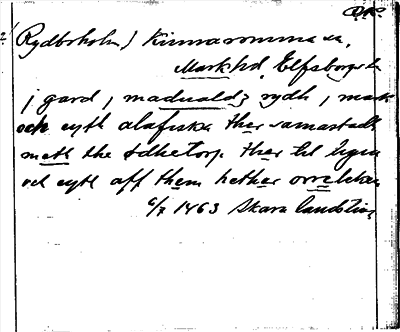 O.R.
(Rydboholm) Kinnarumma sn,
Marks hd, Elfsborgs län
j gard j maduald3 rydh j mark
och eyth alafiske ther samastadh
meth the ødhetorp ther til liggia
och eyth aff them hether orrelekan
6/7 1463 Skara landsting